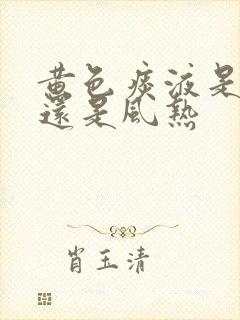 黄色痰液是
還是風熱
肖玉清